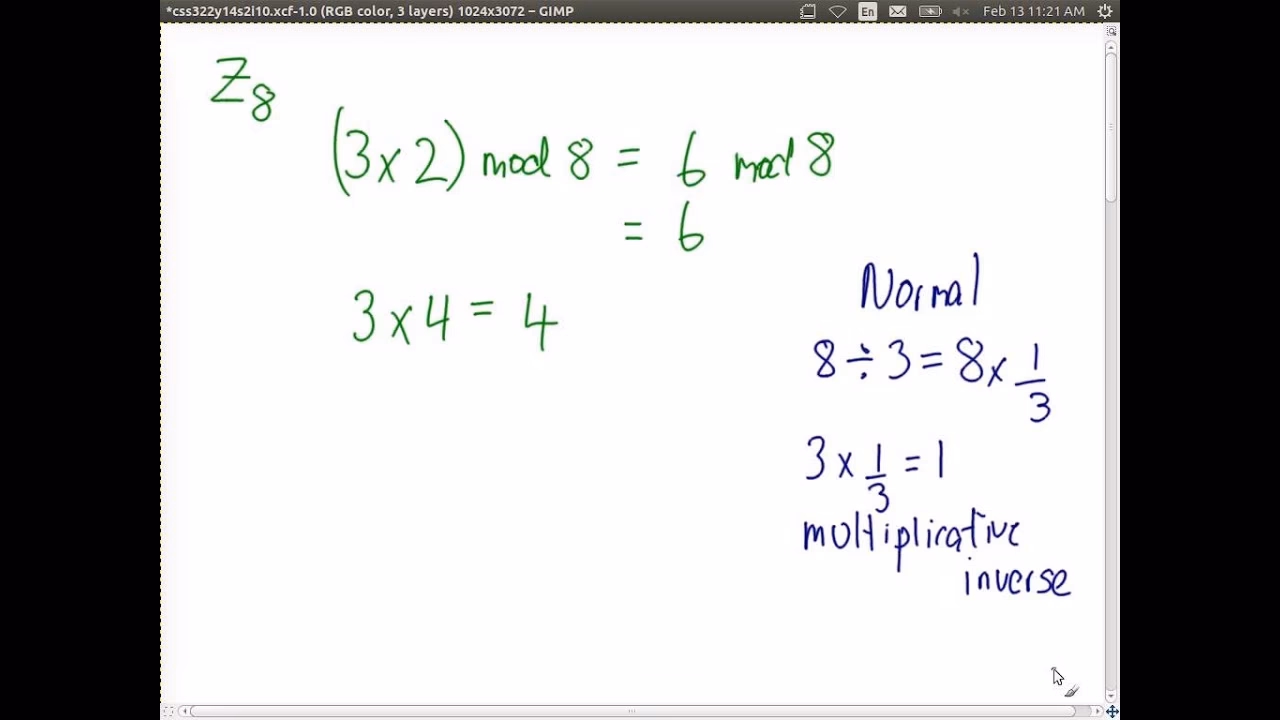 *css322y14s2i10.xcf-1.0 (RGB color, 3 layers) 1024x3072 – GIMP
En
Feb 13 11:21 AM
Z8
(3 x 2) mod 8 = 6 mod 8
= 6
3 x 4 = 4
Normal
8 ÷ 3 = 8 x 1/3
3 x 1/3 = 1
multiplicative
inverse